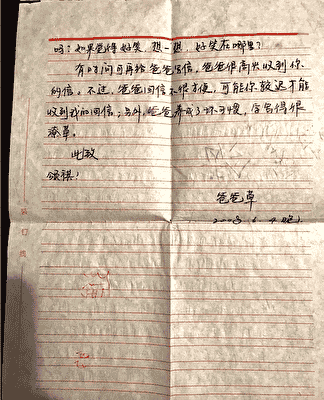 吗？如果觉得好笑，想一想，好笑在哪里？
有时间可再给爸爸写信，爸爸很高兴收到你
的信。不过，爸爸回信不很方便，可能你较迟才能
收到我的回信；另外，爸爸养成了坏习惯，字写得很
潦草。
此致
颂祺！
爸爸草